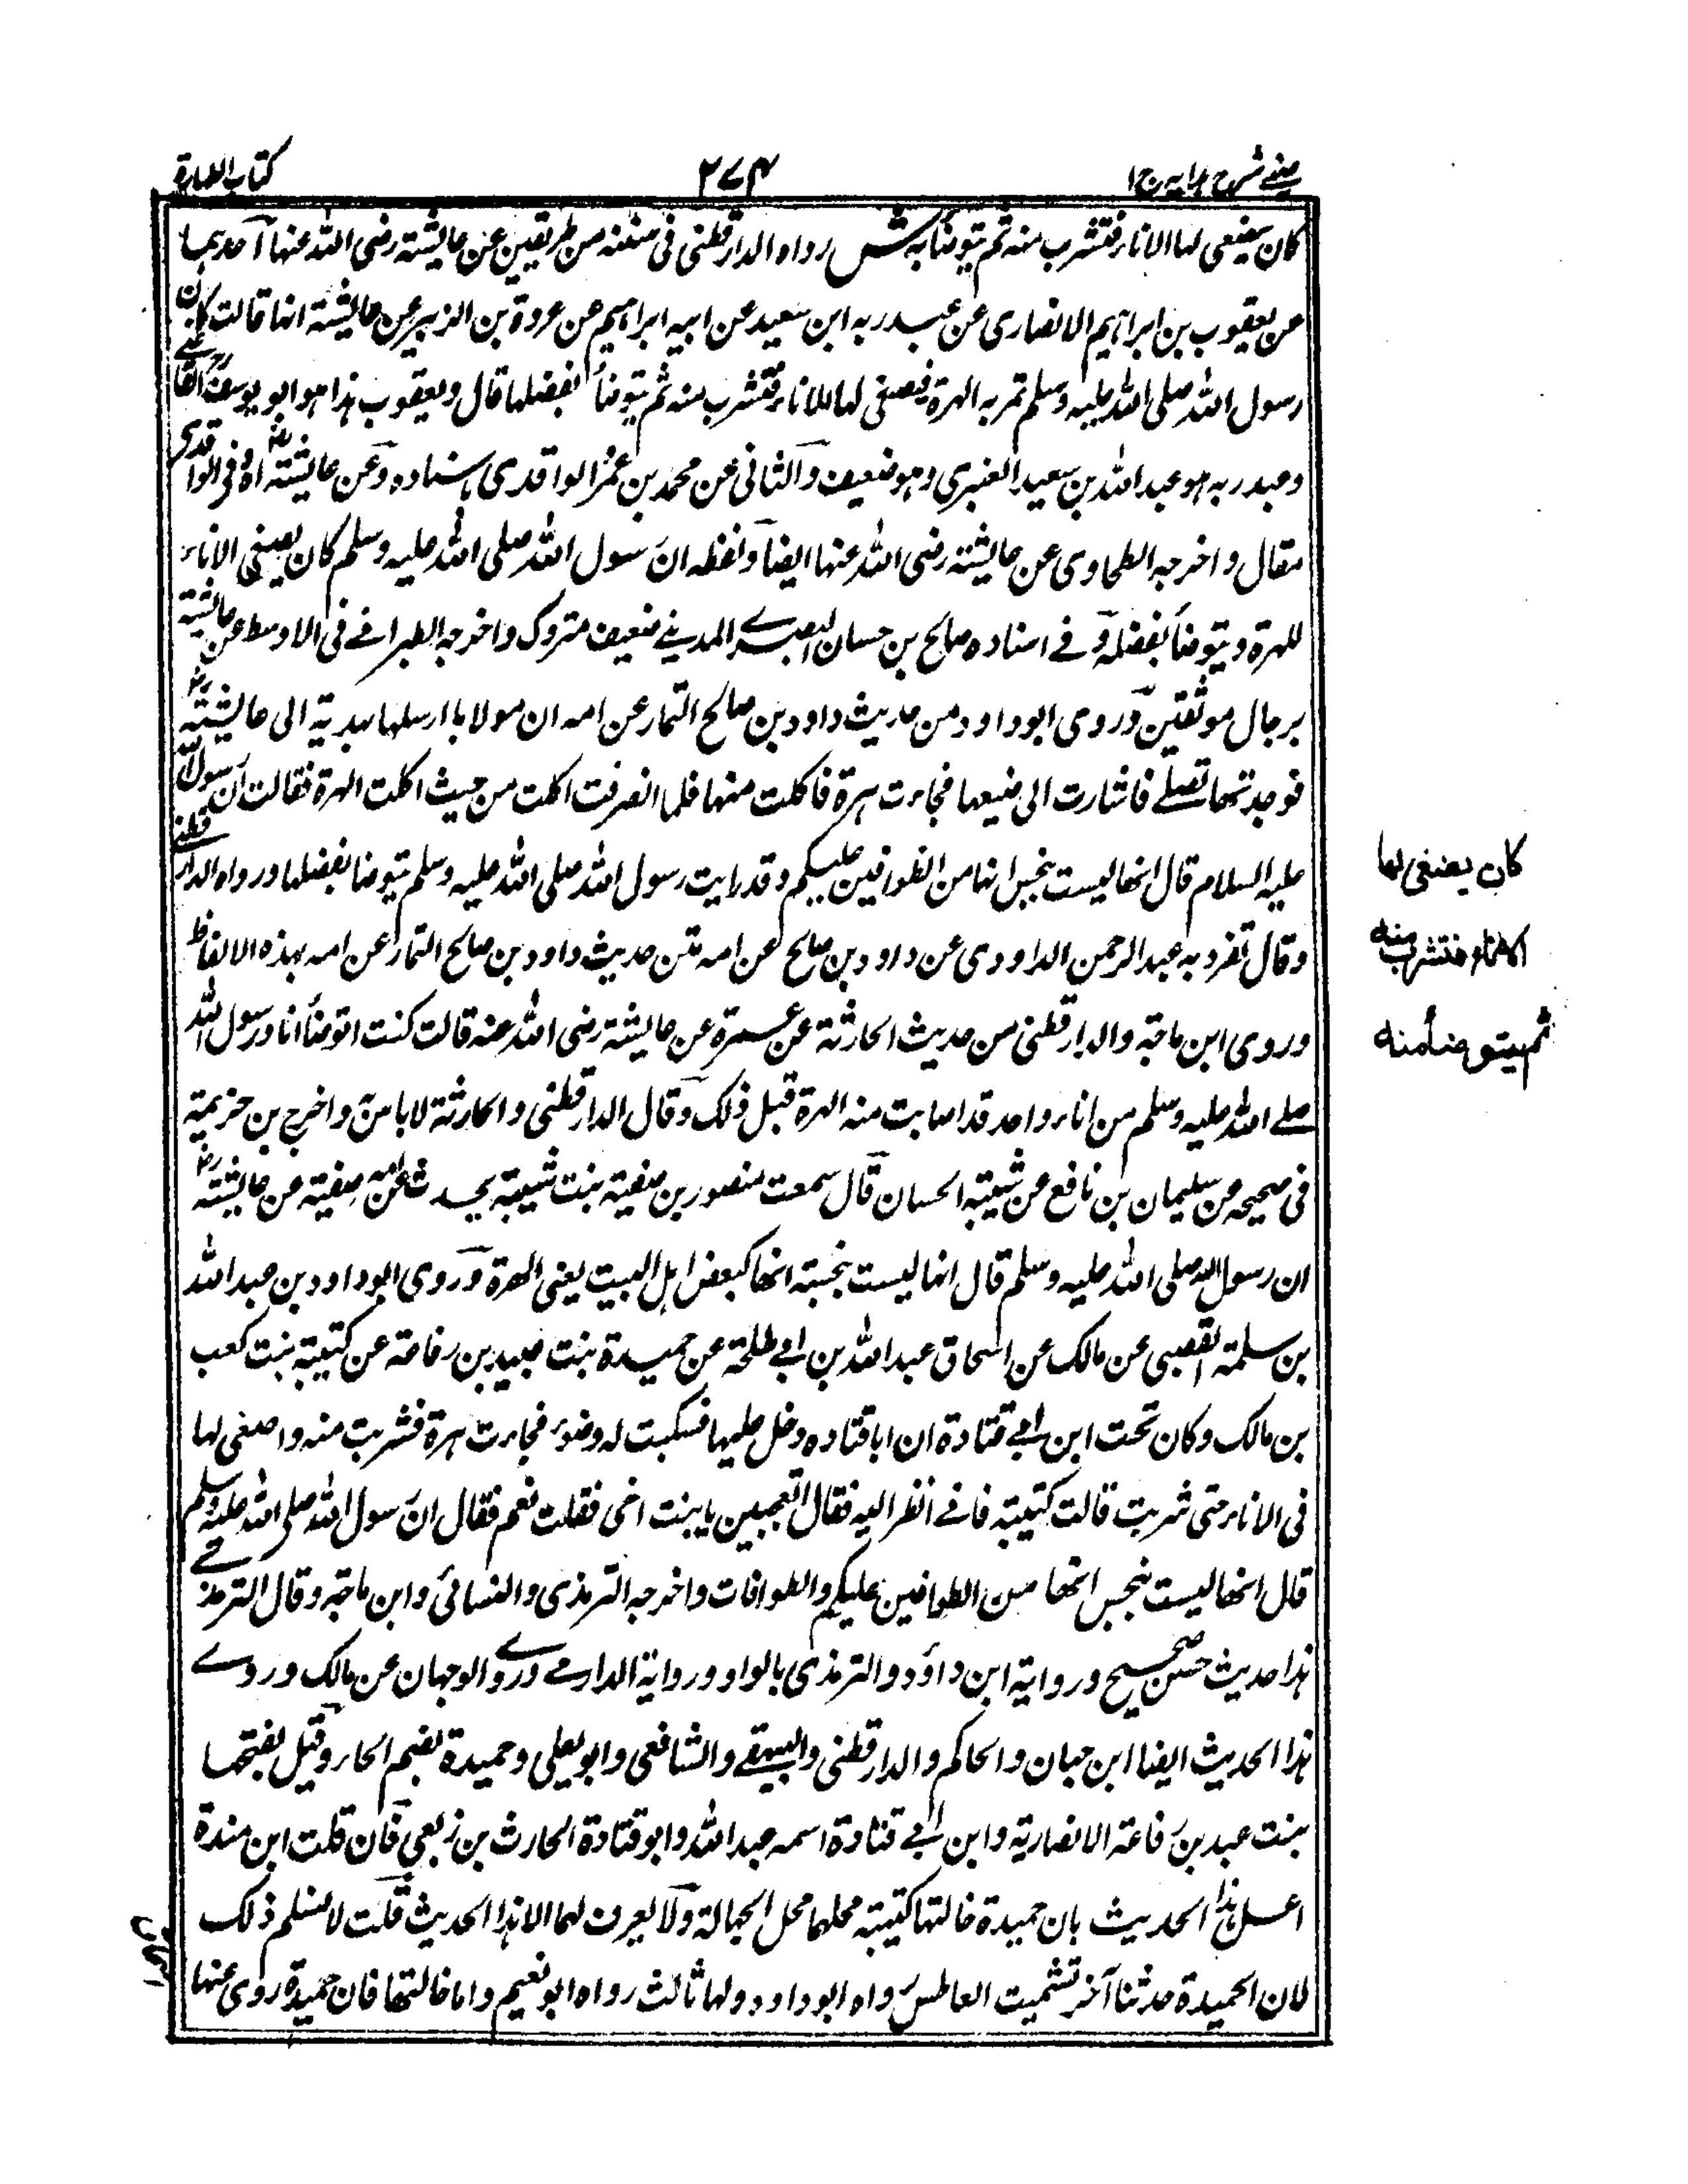 عينے شرح هدايه ج ا
٢٧٤
كتاب الطهارة
كان يصغي لها الاناء فتشرب منه ثم يتوضأ به ش رواه الدارقطنى فى سننه من طريقين عن عايشة رضى الله عنها آحدهما
عن يعقوب بن ابراهيم الانصارى عن عبدربه ابن سعيد عن ابيه ابراهيم عن عروة بن الزبير عن عايشة انها قالت كان
رسول الله صلى الله عليه وسلم تمر به الهرة فيصغى لها للاناء فتشرب منه ثم يتوضأ بفضلها قال ويعقوب هذا هو ابو يوسف القاضے
وعبدربه هو عبد الله بن سعيد العنبرى وهو ضعيف والثانى عن محمد بن عمر الواقدى باسناده وعن عايشة اه وفى الواقدى
مقال واخرجه الطحاوى عن عايشة رضى الله عنها ايضا ولفظه ان رسول الله صلى الله عليه وسلم كان يصغى الاناء
للهرة ويتوضأ بفضله وفے اسناده صالح بن حسان البصرے المدينے ضعيف متروك واخرجه الطبرانے فى الاوسط عن عايشة
برجال موثقين وروى ابو داود من حديث داود بن صالح التمار عن امه ان مولاها ارسلها بهدية الى عايشة رض
فوجدتها تصلے فاشارت الى ضيعها فجاءت هرة فاكلت منها فلما انصرفت اكلت من حيث اكلت الهرة فقالت ان رسول الله
عليه السلام قال انها ليست بنجس انها من الطوافين عليكم وقد رايت رسول الله صلى الله عليه وسلم يتوضا بفضلها ورواه الدارقطنے
وقال تفرد به عبد الرحمن الداودى عن داود بن صالح عن امه متن حديث داود بن صالح التمار عن امه بهذه الالفاظ
وروى ابن ماجة والدارقطنى من حديث الحارثة عن عمرة عن عايشة رضى الله عنه قالت كنت اتوضأ انا ورسول الله
صلے الله عليه وسلم من اناء واحد قد اصابت منه الهرة قبل ذلك وقال الدارقطنى والحارثة لا باس به واخرج بن خزيمة
فى صحيحه عن سليمان بن نافع عن شيبة الحسان قال سمعت منصور بن صفية بنت شيبة يحدث عن امه صفية عن عايشة رض
ان رسول الله صلى الله عليه وسلم قال انها ليست بنجسة انها كبعض اهل البيت يعنى الهرة وروى ابو داود بن عبد الله
بن سلمة القعبى عن مالك عن اسحاق عبد الله بن ابے طلحة عن حميدة بنت عبيد بن رفاعة عن كتيبة بنت كعب
بن مالك وكان تحت ابن ابے قتادة ان ابا قتاده دخل عليها فسكبت له وضوء فجاءت هرة فشربت منه واصغى لها
فى الاناء حتى شربت قالت كتيبة فانے انظر اليه فقال اتعجبين يا بنت اخى فقلت نعم فقال ان رسول الله صلى الله عليه وسلم
قال انها ليست بنجس انها من الطوافين عليكم والطوافات واخرجه الترمذى والنسائى وابن ماجة وقال الترمذے
هذا حديث حسن صحيح ورواية ابن داود والترمذى بالواو ورواية الدارمے وروے الوجهان عن مالك وروے
هذا الحديث ايضا ابن حبان والحاكم والدارقطنى والبيهقے والشافعى وابو يعلى وحميدة بضم الحاء وقيل بفتحها
بنت عبد بن رفاعة الانصارية وابن ابے قتادة اسمه عبد الله وابو قتادة الحارث بن ربعى فان قلت ابن مندة
اعل هذا الحديث بان حميدة خالتها كتيبة محلها محل الجهالة ولا يعرف لهما الا هذا الحديث قلت لا نسلم ذلك
لان الحميدة حدثنا آخر تشميت العاطس رواه ابو داود ولها ثالث رواه ابو نعيم واما خالتها فان حميدة روى عنها
كان يصغى لها
الاناء فتشرب منه
ثم يتوضأ منه